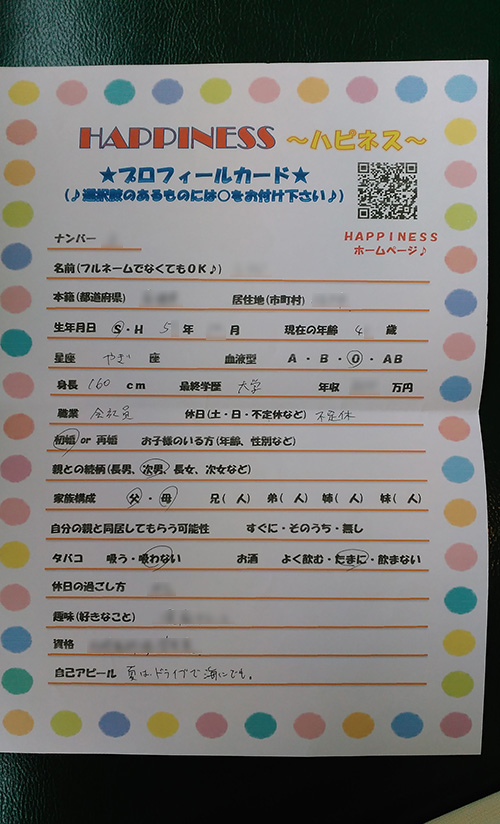 HAPPINESS ～ハピネス～
★プロフィールカード★
(♪選択肢のあるものには○をお付け下さい♪)
HAPPINESS
ホームページ♪
ナンバー
名前(フルネームでなくてもOK♪)
本籍(都道府県) 居住地(市町村)
生年月日 S・H 5 年 月 現在の年齢 4 歳
星座 やぎ 座 血液型 A・B・O・AB
身長 160 cm 最終学歴 大学 年収 万円
職業 会社員 休日(土・日・不定休など) 不定休
初婚 or 再婚 お子様のいる方(年齢、性別など)
親との続柄(長男、次男、長女、次女など)
家族構成 父・母 兄( 人) 弟( 人) 姉( 人) 妹( 人)
自分の親と同居してもらう可能性 すぐに・そのうち・無し
タバコ 吸う・吸わない お酒 よく飲む・たまに・飲まない
休日の過ごし方
趣味(好きなこと)
資格
自己アピール 夏は、ドライブで海にでも。